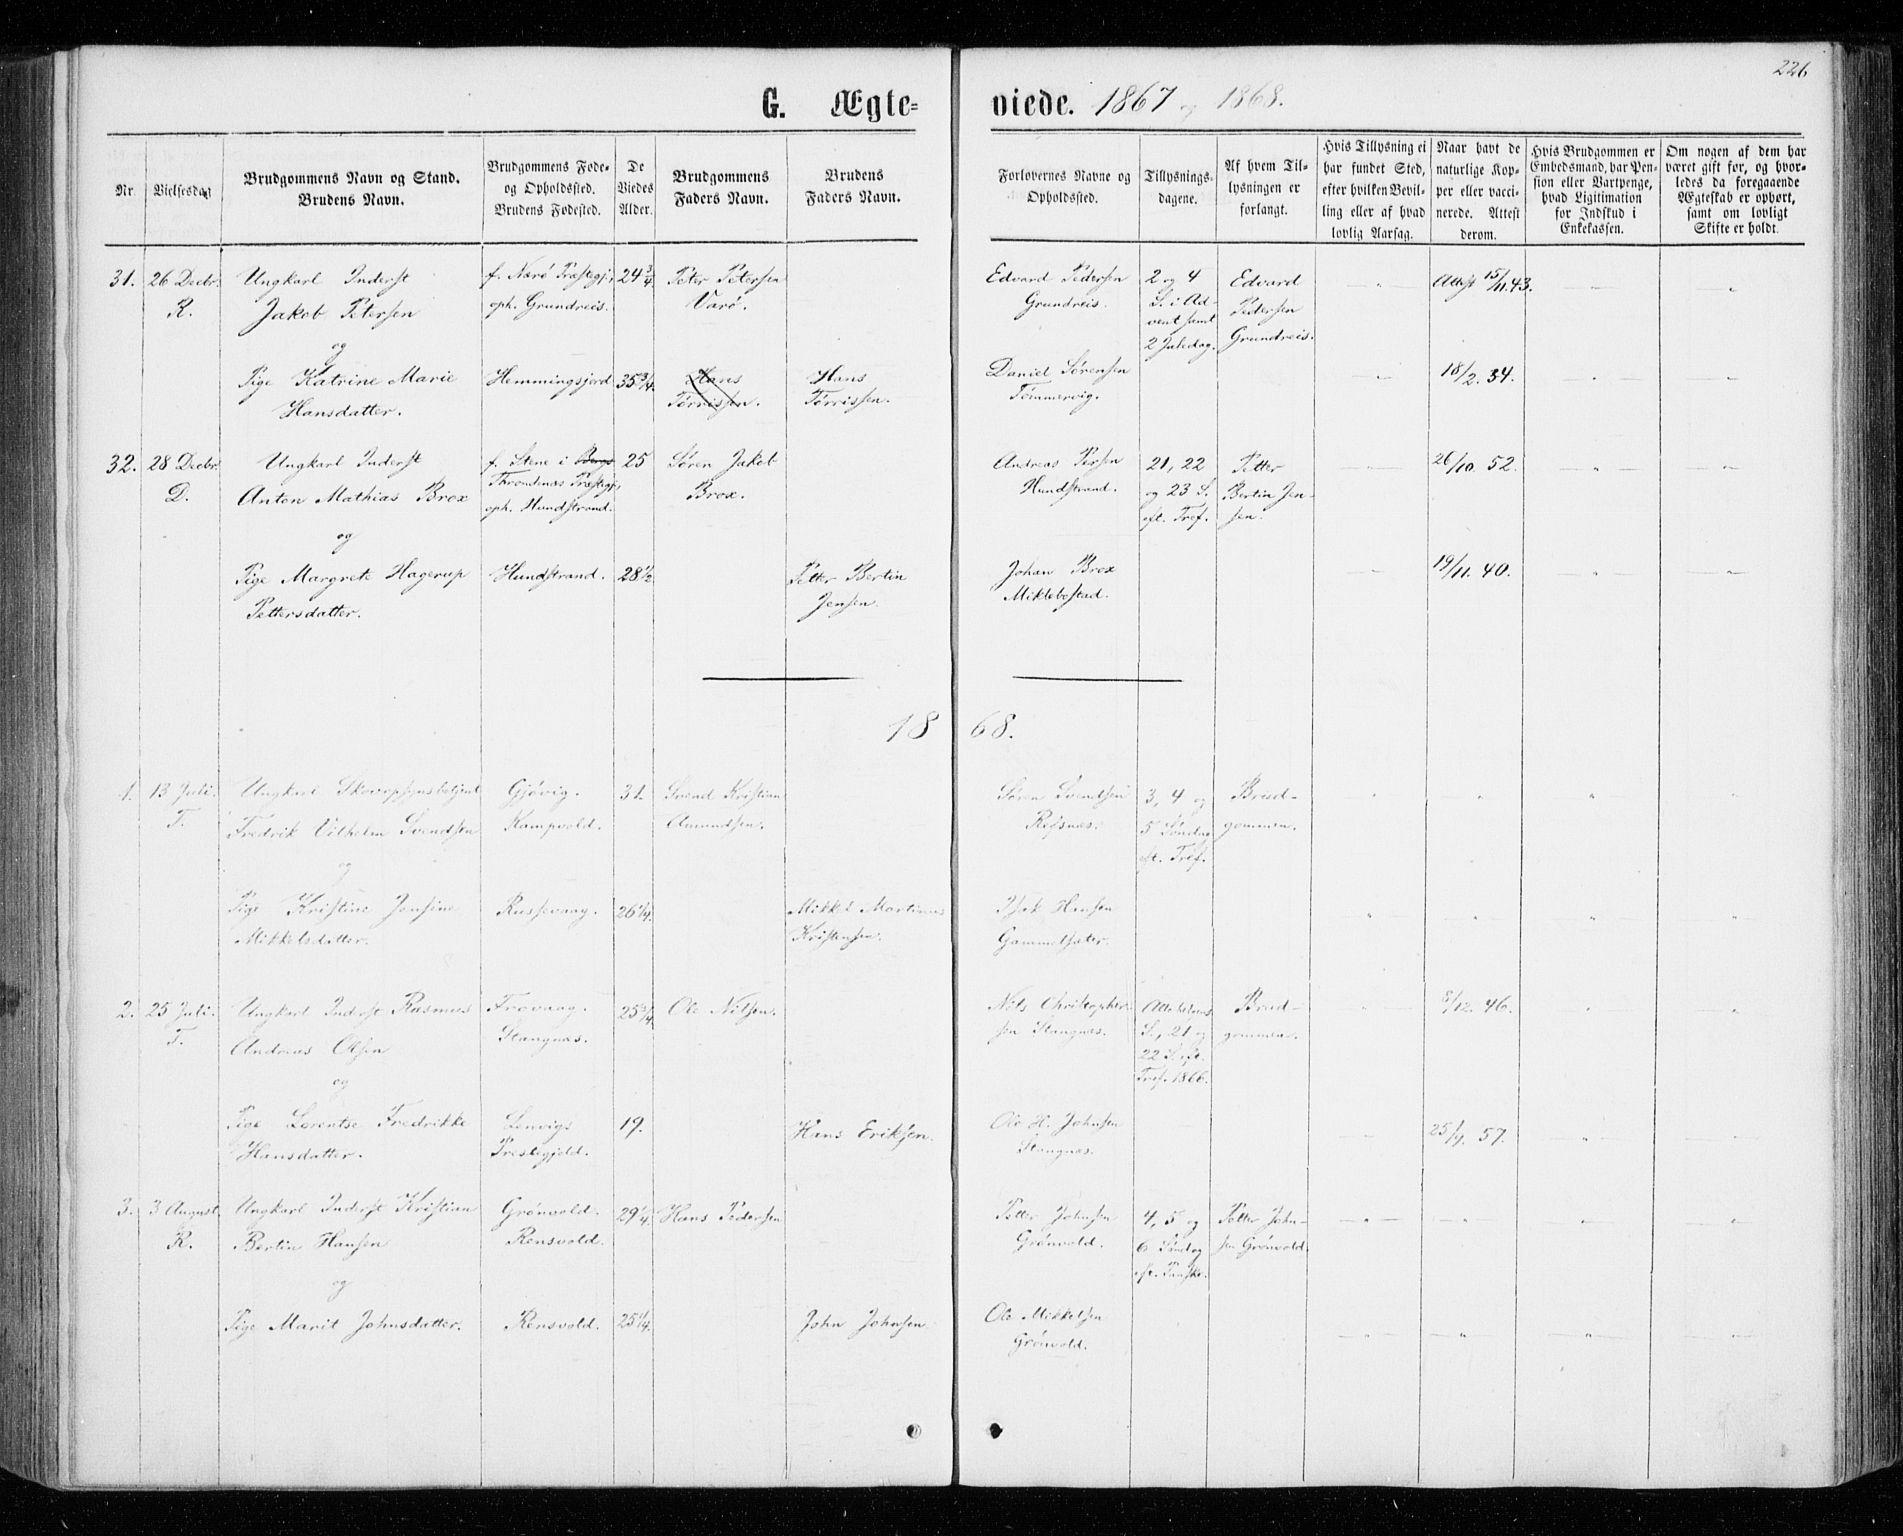 226
G. Ægte=
viede. 1867 og 1868.
Nr.
Vielsesdag
Brudgommens Navn og Stand.
Brudens Navn.
Brudgommens Føde-
og Opholdssted.
Brudens Fødested.
De
Viedes
Alder.
Brudgommens
Faders Navn.
Brudens
Faders Navn.
Forlovernes Navne og
Opholdssted.
Tillysnings-
dagene.
Af hvem Til-
lysningen er
forlangt.
Hvis Tillysning ei
har fundet Sted,
efter hvilken Bevil-
ling eller af hvad
lovlig Aarsag.
Naar havt de
naturlige Kop-
per eller vacci-
nerede. Attest
derom.
Hvis Brudgommen er
Embedsmand, har Pen-
sion eller Vartpenge,
hvad Ligitimation
for Indskud i
Enkekassen.
Om nogen af dem har
været gift før, og hvor-
ledes da foregaaende
Ægteskab er ophørt,
samt om lovligt
Skifte er holdt.
31.
26 Decbr.
R.
Ungkarl Inderst
Jakob Petersen
og
Pige Katrine Marie
Hansdatter.
f. Nærø Præstegj.,
oph. Grundreis.
Hemmingsjord
24 3/4
35 3/4.
Peter Petersen
Varø.
Hans
Tørrissen.
Hans
Tørrissen.
Edvard Pedersen
Grundreis.
Daniel Sørensen
Tømmervig.
2 og 4
S. i Ad-
vent samt
2 Juledag.
Edvard
Pedersen
Grundreis.
Attest 15/11.43.
18/2. 34.
32.
28 Decbr.
D.
Ungkarl Inderst
Anton Mathias Brox
og
Pige Margrete Hagerup
Pettersdatter.
f. Stene i Bergs
Throndenæs Præstegj.,
oph. Hundstrand.
Hundstrand.
25
28 1/2
Søren Jakob
Brox.
Petter Bertin
Jensen.
Andreas Persen
Hundstrand.
Johan Brox
Miklebostad.
21, 22
og 23 S.
eft. Tref.
Petter
Bertin Jen-
sen.
26/10. 52.
19/11. 40.
1868.
1.
13 Juli.
T.
Ungkarl Skovopsynsbetjent
Fredrik Vilhelm Svendsen
og
Pige Kristine Jensine
Mikkelsdatter.
Gjøvig.
Kampvold.
Russevaag.
31.
26 1/4.
Svend Kristian
Amundsen.
Mikkel Martinus
Kristensen.
Søren Svendsen
Refsnæs.
Isak Hansen
Gammelsæter.
3, 4 og
5 Søndag
eft. Tref.
Brud-
gommen.
2.
25 Juli.
T.
Ungkarl Inderst Rasmus
Andreas Olsen
og
Pige Lorentse Fredrikke
Hansdatter.
Frovaag.
Stangnæs.
Lenvigs
Prestegjeld.
19.
Ole Nilsen.
Hans Eriksen.
Nils Christopher-
sen Stangnæs.
Ole H. Johnsen
Stangnæs.
Allehelgens
S., 21 og
22 S. eft.
Tref. 1866.
Brud-
gommen.
8/12. 46.
57.
3.
3 August
R.
Ungkarl Inderst Kristian
Bertin Hansen
og
Pige Marit Johnsdatter.
Grønvold.
Rensvold.
Rensvold.
29 1/4.
25 1/4.
Hans Pedersen
John Johnsen
Petter Johnsen
Grønvold.
Ole Mikkelsen
Grønvold.
4, 5 og
6 Søndag
eft. Paaske.
Petter John-
sen Grønvold.